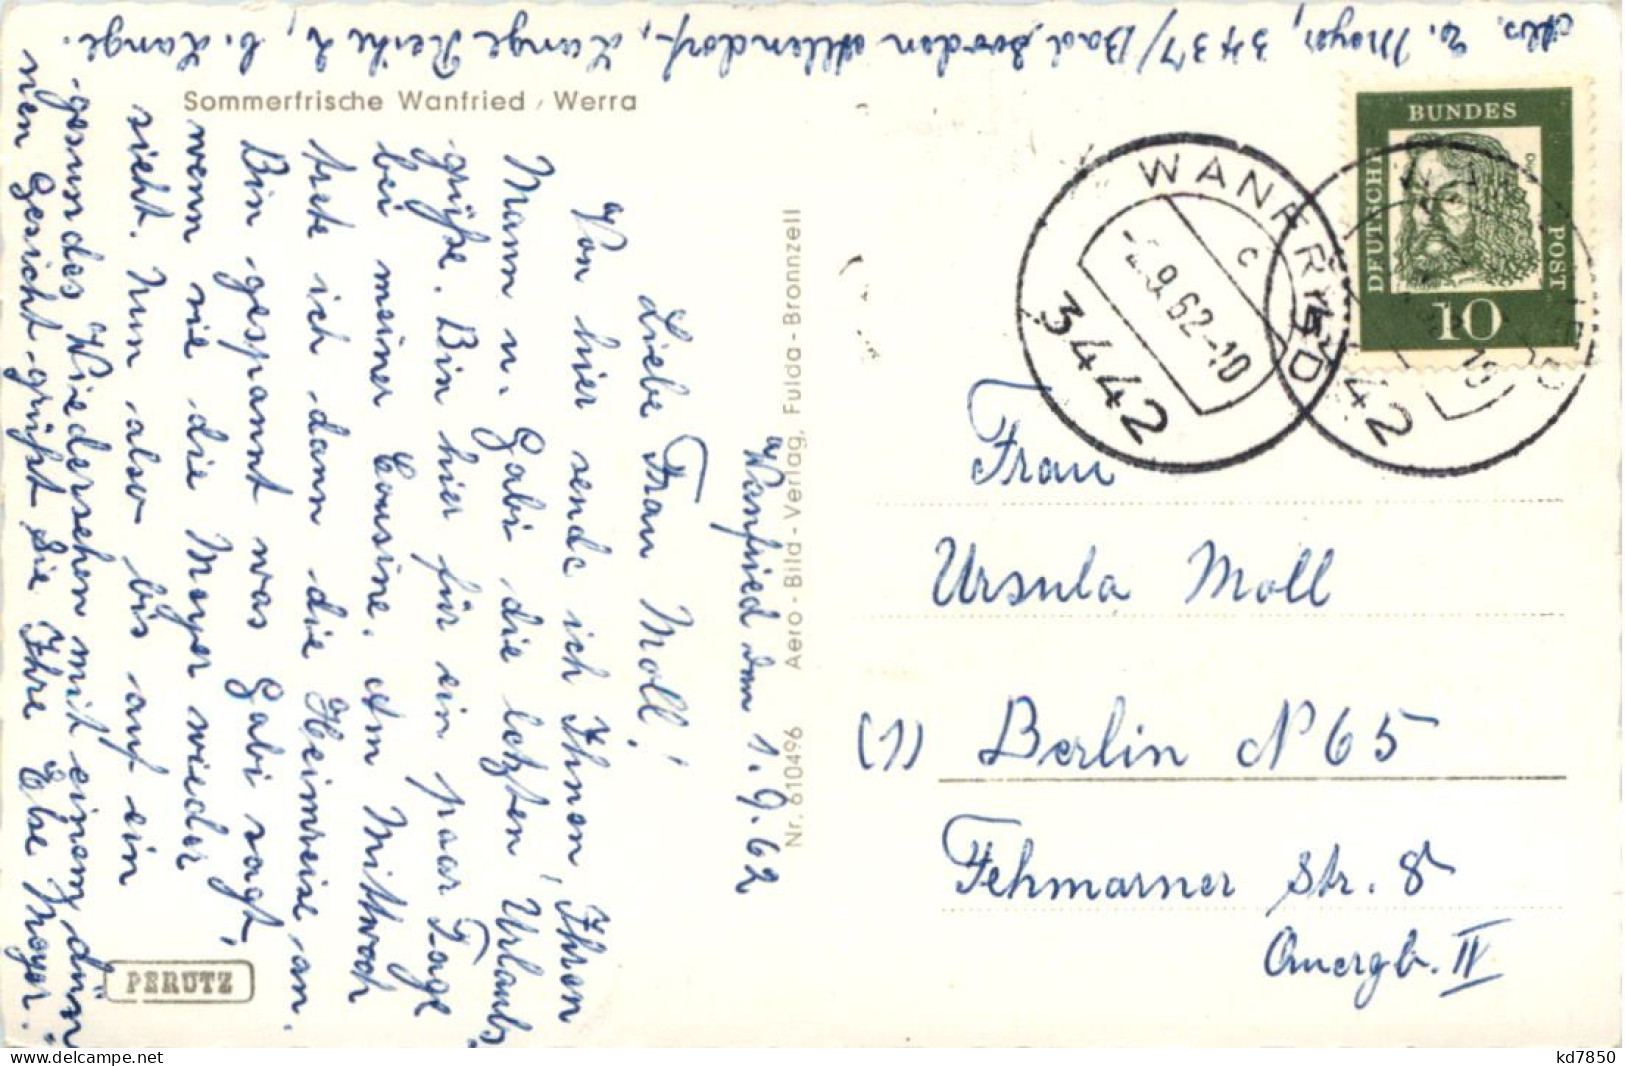 Abs. E. Moyer, 3437/Bad Sooden Allendorf, Lange Reihe 2, b. Lange.
Sommerfrische Wanfried / Werra
Wanfried den 1.9.62
Liebe Frau Moll!
Von hier sende ich Ihnen, Ihren
Mann u. Gabi die letzten Urlaubs
grüße. Bin hier für ein paar Tage
bei meiner Cousine. Am Mittwoch
trete ich dann die Heimreise an.
Bin gespannt was Gabi sagt,
wenn sie die Moyer wieder
sieht. Nun also bis auf ein
gesundes Wiedersehen mit einem dün-
nen Gesicht grüßt Sie Ihre Else Moyer.
PERUTZ
Nr. 610496 Aero-Bild-Verlag, Fulda-Bronnzell
WANFRIED
c
9.62-10
3442
DEUTSCHE
BUNDES
POST
10
Frau
Ursula Moll
(1) Berlin N 65
Fehmarner Str. 8
Quergb. IV
kd7850
delcampe.net